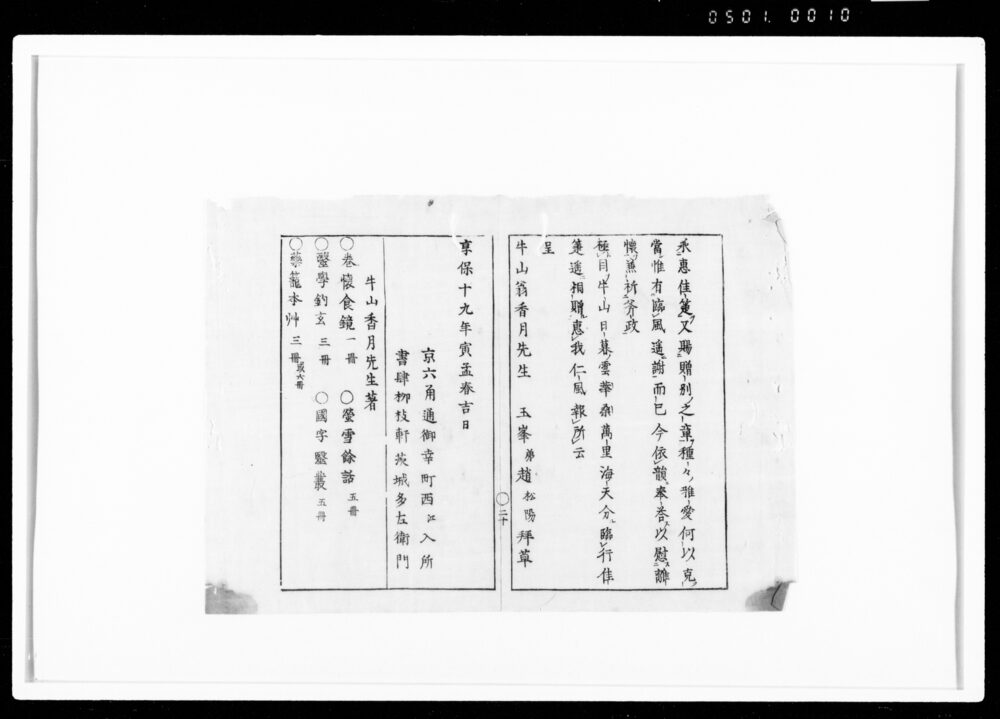 0501.0010
承惠佳箑又賜贈別之章種々雅愛何以克
當惟有臨風遥謝而已今依韻奉荅以慰離
懷焦祈斧政
極目牛山日暮雲華桑萬里海天分臨行佳
箑遥相贈惠我仁風報所云
呈
牛山翁香月先生 玉峯弟趙松陽拜草
二十
享保十九年寅孟春吉日
京六角通御幸町西江入所
書肆柳枝軒茨城多左衛門
牛山香月先生著
○卷懷食鏡一冊 ○螢雪餘話五冊
○醫學釣玄三冊 ○國字醫叢五冊
○藥籠本艸三冊或六冊